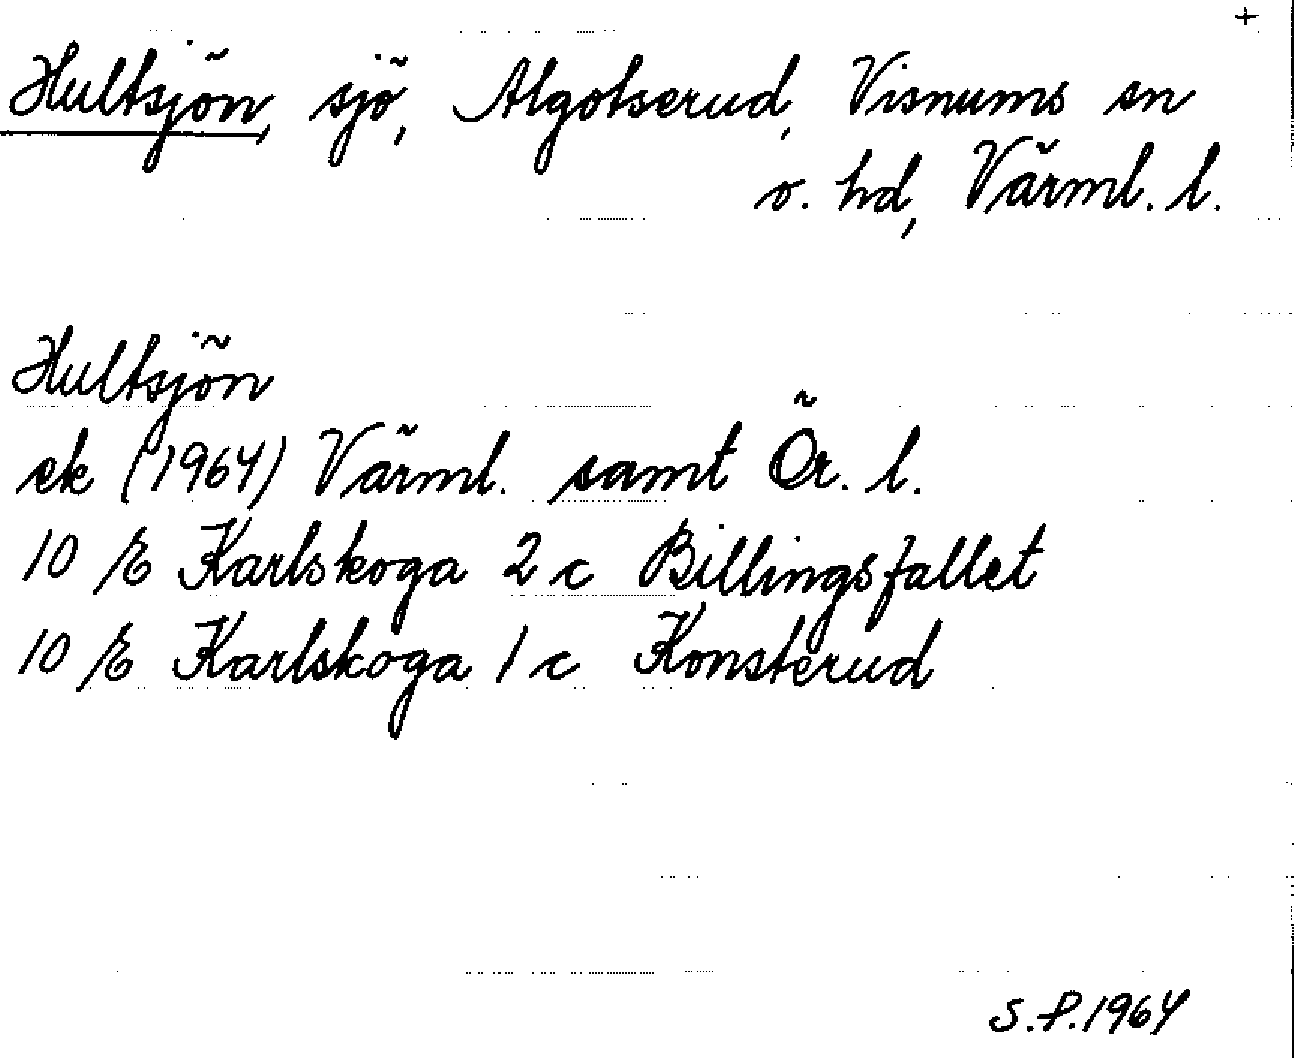 +
Hultsjön, sjö, Algotserud, Visnums sn
o. hd, Värml. l.
Hultsjön
ek (1964) Värml. samt Ör. l.
10 E Karlskoga 2 c Billingsfallet
10 E Karlskoga 1 c Konsterud
S.P. 1964